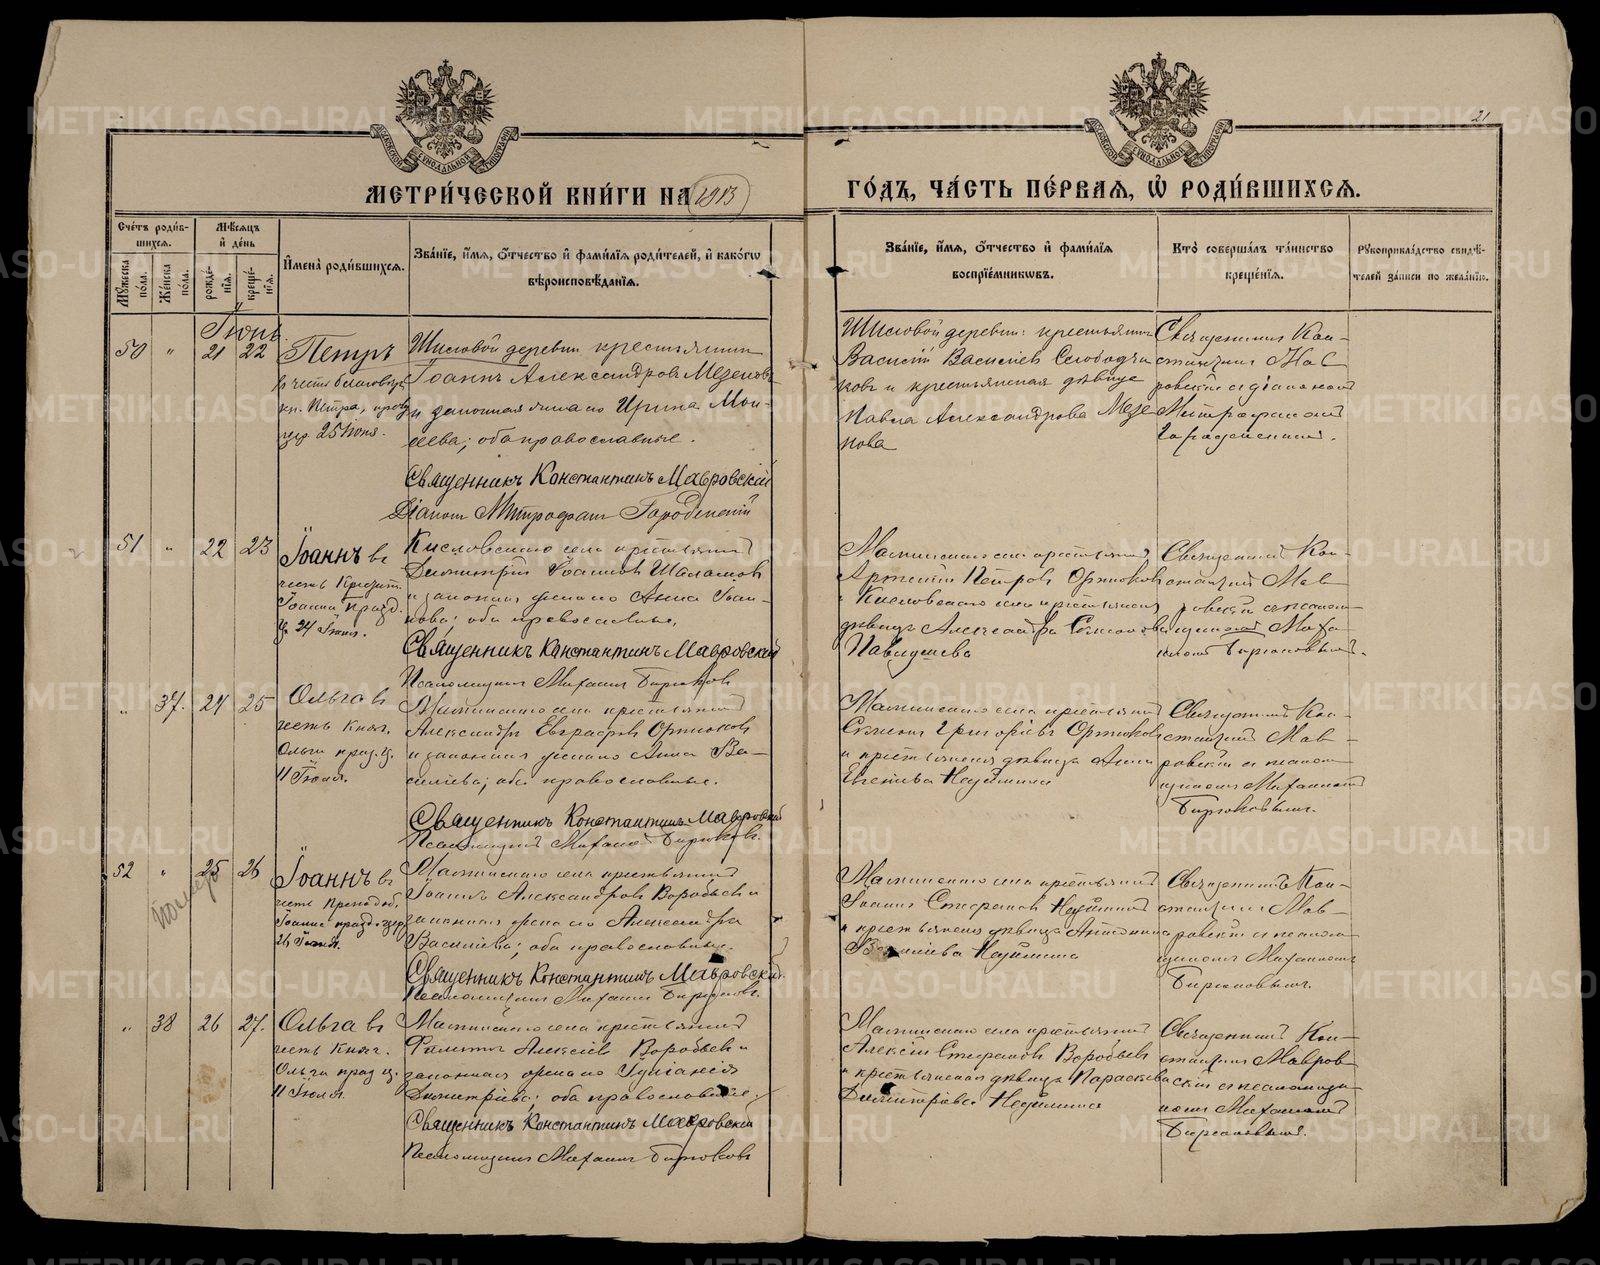 21
МЕТРИ́ЧЕСКОЙ КНИ́ГИ НА 1913 ГО́ДЪ, ЧА́СТЬ ПЕ́РВАЯ, Ѡ РОДИ́ВШИХСЯ.
Сче́тъ роди́в-
шихся.
Му́жеска по́ла.
Же́нска по́ла.
Мѣ́сяцъ
и҆ де́нь
рожде́-
нїя.
креще́-
нїя.
И҆мена̀ роди́вшихся.
Зва́нїе, и҆́мя, ѻ҆́тчество и҆ фами́лїя роди́телей, и҆ како́гѡ
вѣроисповѣ́данїя.
Зва́нїе, и҆́мя, ѻ҆́тчество и҆ фами́лїя
воспрїе́мникѡвъ.
Кто̀ соверша́лъ та́инство
креще́нїя.
Рукоприкла́дство свидѣ́-
телей за́писи по жела́нїю.
Іюнь
50 " 21 22
Петръ
въ честь благовѣрн.
кн. Петра,
25 Іюня.
Шиловой деревни крестьянинъ
Іоаннъ Александровъ Мезеновъ
и законная жена его Ирина Мои-
сеева; оба православные.
Священникъ Константинъ Мавровскій
Діаконъ Митрофанъ
Шиловой деревни крестьянинъ
Василій Васильевъ Слободчи
ковъ и крестьянская дѣвица
Павла Александрова Мезе
нова
Священникъ Кон-
стантинъ Мав
ровскій съ діакономъ
Митрофаномъ
51 " 22 23
Іоаннъ въ
честь Крестит.
Іоанна празд.
24 Іюня.
Кисловскаго села крестьянинъ
Димитрій Іоанновъ
и законная жена его Анна Іоан-
нова; оба православные.
Священникъ Константинъ Мавровскій
Псаломщикъ Михаилъ Бирюковъ
Маминскаго села крестьянинъ
Артемій Петровъ
и Кисловскаго села крестьянская
дѣвица Александра
Священникъ Кон-
стантинъ Мав-
ровскій съ псалом-
щикомъ Миха-
иломъ Бирюковымъ.
" 37. 24 25
Ольга въ
честь Княг.
Ольги празд.
11 Іюля.
Маминскаго села крестьянинъ
Александръ Евграфовъ
и законная жена его Анна Ва-
сильева; оба православные.
Священникъ Константинъ Мавровскій
Псаломщикъ Михаилъ Бирюковъ.
Маминскаго села крестьянинъ
Григорьевъ
и крестьянская дѣвица Анна
Священникъ Кон-
стантинъ Мав-
ровскій съ псалом-
щикомъ Михаиломъ
Бирюковымъ.
52 " 25 26
Іоаннъ въ
честь Преподоб.
Іоанна празд.
26 Іюня.
Маминскаго села крестьянинъ
Іоаннъ Александровъ Воробьевъ и
законная жена его Александра
Васильева; оба православные.
Священникъ Константинъ Мавровскій
Псаломщикъ Михаилъ Бирюковъ.
Маминскаго села крестьянинъ
Іоаннъ Стефановъ
и крестьянская дѣвица Антонина
Васильева
Священникъ Кон-
стантинъ Мав-
ровскій съ псалом-
щикомъ Михаиломъ
Бирюковымъ.
" 38 26 27.
Ольга въ
честь Княг.
Ольги празд.
11 Іюля.
Маминскаго села крестьянинъ
Алексѣевъ Воробьевъ и
законная жена его Іуліанія
Димитріева; оба православные.
Священникъ Константинъ Мавровскій
Псаломщикъ Михаилъ Бирюковъ
Маминскаго села крестьянинъ
Алексѣй Стефановъ Воробьевъ
и крестьянская дѣвица Параскева
Димитріева
Священникъ Кон-
стантинъ Мавров-
скій съ псаломщи-
комъ Михаиломъ
Бирюковымъ.
METRIKI.GASO-URAL.RU